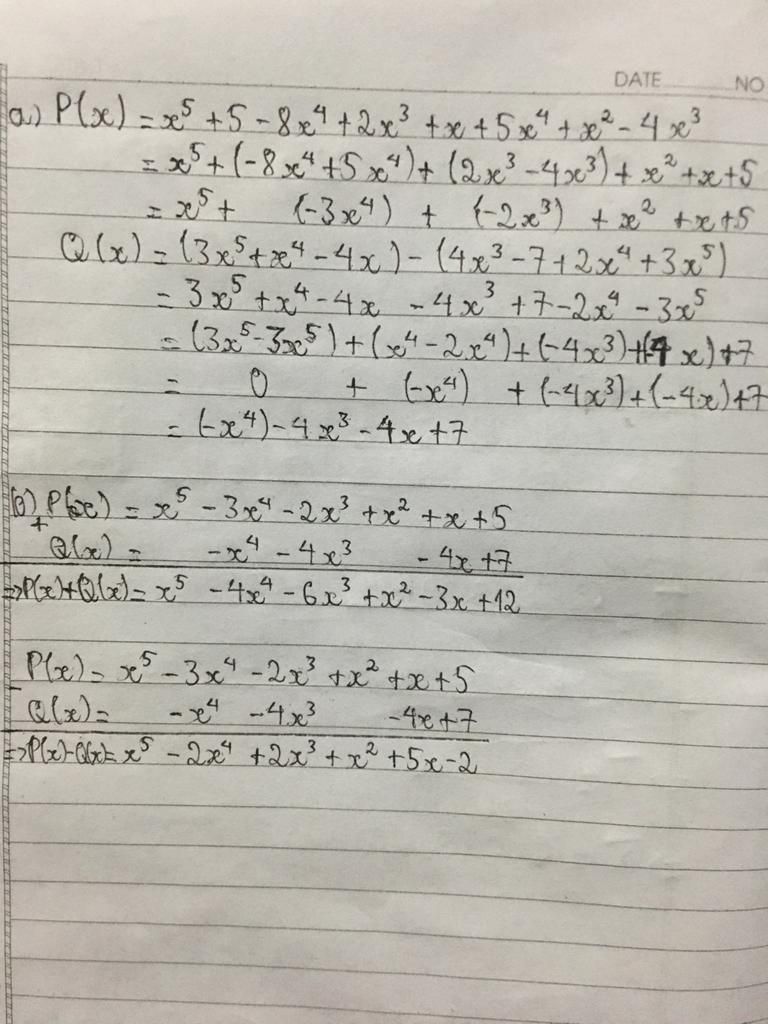 DATE NO
a) P(x) = x⁵ + 5 - 8x⁴ + 2x³ + x + 5x⁴ + x² - 4x³
= x⁵ + (-8x⁴ + 5x⁴) + (2x³ - 4x³) + x² + x + 5
= x⁵ + (-3x⁴) + (-2x³) + x² + x + 5
Q(x) = (3x⁵ + x⁴ - 4x) - (4x³ - 7 + 2x⁴ + 3x⁵)
= 3x⁵ + x⁴ - 4x - 4x³ + 7 - 2x⁴ - 3x⁵
= (3x⁵ - 3x⁵) + (x⁴ - 2x⁴) + (-4x³) + (-4x) + 7
= 0 + (-x⁴) + (-4x³) + (-4x) + 7
= (-x⁴) - 4x³ - 4x + 7
b) P(x) = x⁵ - 3x⁴ - 2x³ + x² + x + 5
+
Q(x) = -x⁴ - 4x³ - 4x + 7
=> P(x) + Q(x) = x⁵ - 4x⁴ - 6x³ + x² - 3x + 12
P(x) = x⁵ - 3x⁴ - 2x³ + x² + x + 5
-
Q(x) = -x⁴ - 4x³ - 4x + 7
=> P(x) - Q(x) = x⁵ - 2x⁴ + 2x³ + x² + 5x - 2